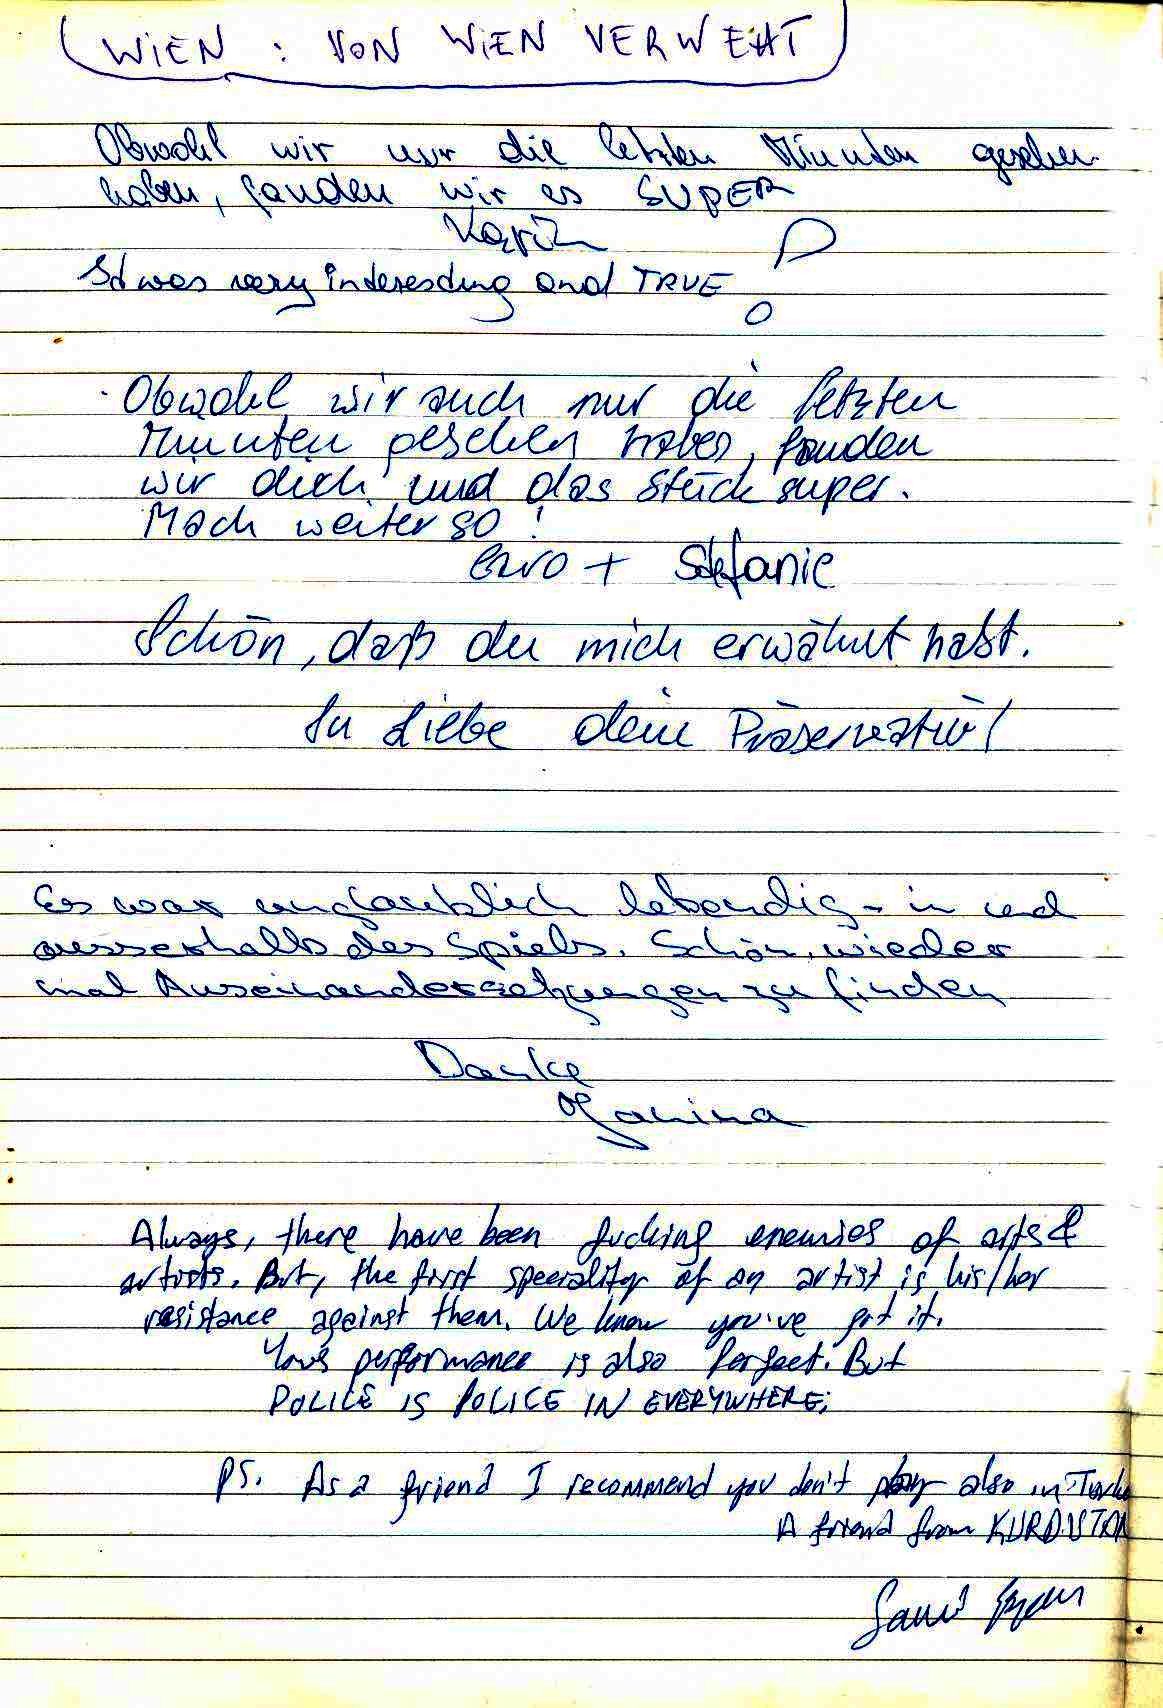 WIEN : VON WIEN VERWEHT
Obwohl wir nur die letzten Minuten gesehen
haben, fanden wir es SUPER
Karin
It was very interesting and TRUE!
Obwohl wir auch nur die letzten
Minuten gesehen haben, fanden
wir dich und das Stück super.
Mach weiter so!
+ Stefanie
Schön, daß du mich erwähnt hast.
In Liebe dein Präservativ!
Es war unglaublich lebendig - in und
ausserhalb des Spiels. Schön, wieder
mal Auseinandersetzungen zu finden
Danke
Janina
Always, there have been fucking enemies of arts &
artists. But, the first speciality of an artist is his/her
resistance against them. We know you've got it.
Your performance is also Perfect. But
POLICE IS POLICE IN EVERYWHERE;
PS. As a friend I recommend you don't play also in
A friend from KURDISTAN